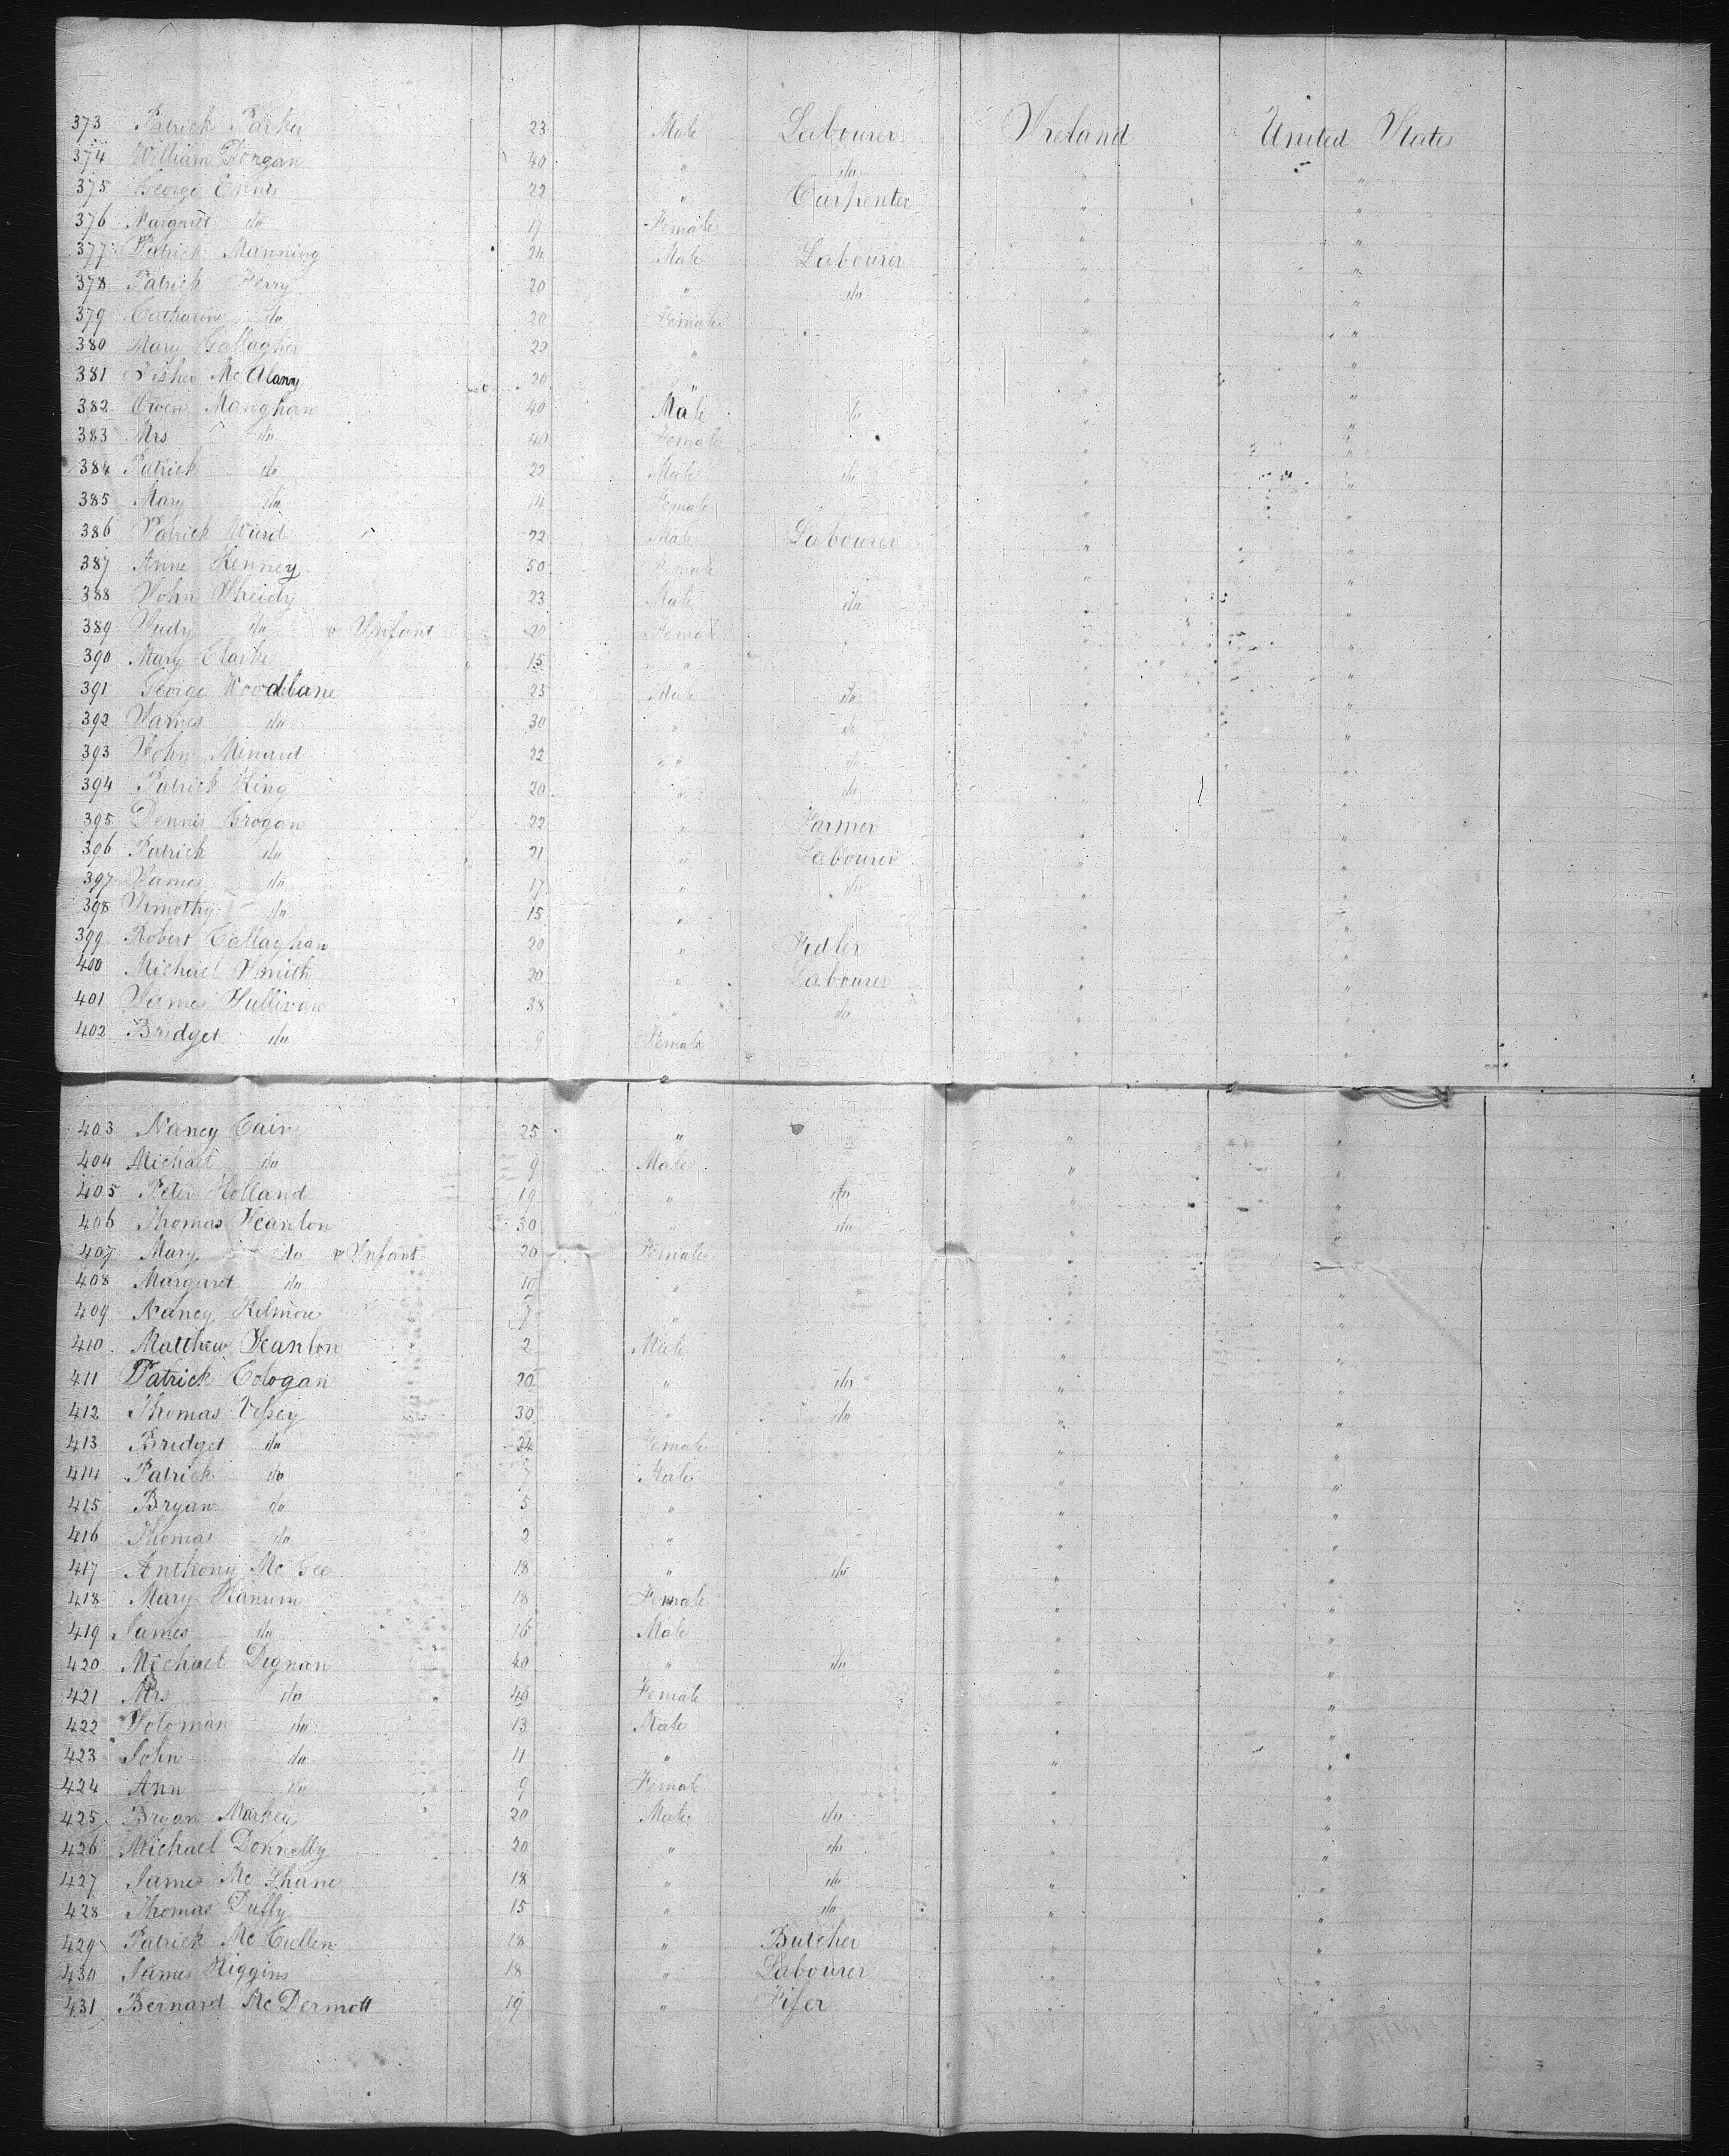 373 Patrick Parker 23 Male Labourer Ireland United States
374 William Dorgan 40 " do " "
375 George Ennis 22 " Carpenter " "
376 Margaret do 17 Female " "
377 Patrick Manning 24 Male Labourer " "
378 Patrick Henry 20 " do " "
379 Catharine do 20 Female " "
380 Mary Gallagher 22 " " "
381 Mc Alany 20 " " "
382 Owen Monghan 40 Male do " "
383 Mrs do 40 Female " "
384 Patrick do 22 Male do " "
385 Mary do 14 Female " "
386 Patrick Ward 22 Male Labourer " "
387 Anne Kenney 50 Female " "
388 John Sheidy 23 Male do " "
389 Judy do & Infant 20 Female " "
390 Mary Clarke 15 " " "
391 George Woodbane 25 Male do " "
392 James do 30 " do " "
393 John Minard 22 " do " "
394 Patrick King 20 " do " "
395 Dennis Grogan 22 " Farmer " "
396 Patrick do 21 " Labourer " "
397 James do 17 " do " "
398 Timothy do 15 " " "
399 Robert Callaghan 20 " Fidler " "
400 Michael Smith 20 " Labourer " "
401 James Sullivan 38 " do " "
402 Bridget do 9 Female " "
403 Nancy Cain 25 " " "
404 Michael do 9 Male " "
405 Peter Holland 19 " do " "
406 Thomas Scanlon 30 " do " "
407 Mary do & Infant 20 Female " "
408 Margaret do " " "
409 Nancy Kilmore 7 " " "
410 Matthew Scanlon 2 Male " "
411 Patrick Cologan 20 " do " "
412 Thomas Vessey 30 " do " "
413 Bridget do 24 Female " "
414 Patrick do 7 Male " "
415 Bryan do 5 " " "
416 Thomas do 2 " " "
417 Anthony Mc Gee 18 " do " "
418 Mary Hanum 18 Female " "
419 James do 16 Male " "
420 Michael Dignan 40 " do " "
421 Mrs do 40 Female " "
422 Soloman do 13 Male " "
423 John do 11 " " "
424 Ann do 9 Female " "
425 Bryan Markey 20 Male do " "
426 Michael Donnelly 20 " do " "
427 James Mc Shane 18 " do " "
428 Thomas Duffy 15 " do " "
429 Patrick Mc Cullen 18 " Butcher " "
430 James Higgins 18 " Labourer " "
431 Bernard McDermott 19 " Fifer " "